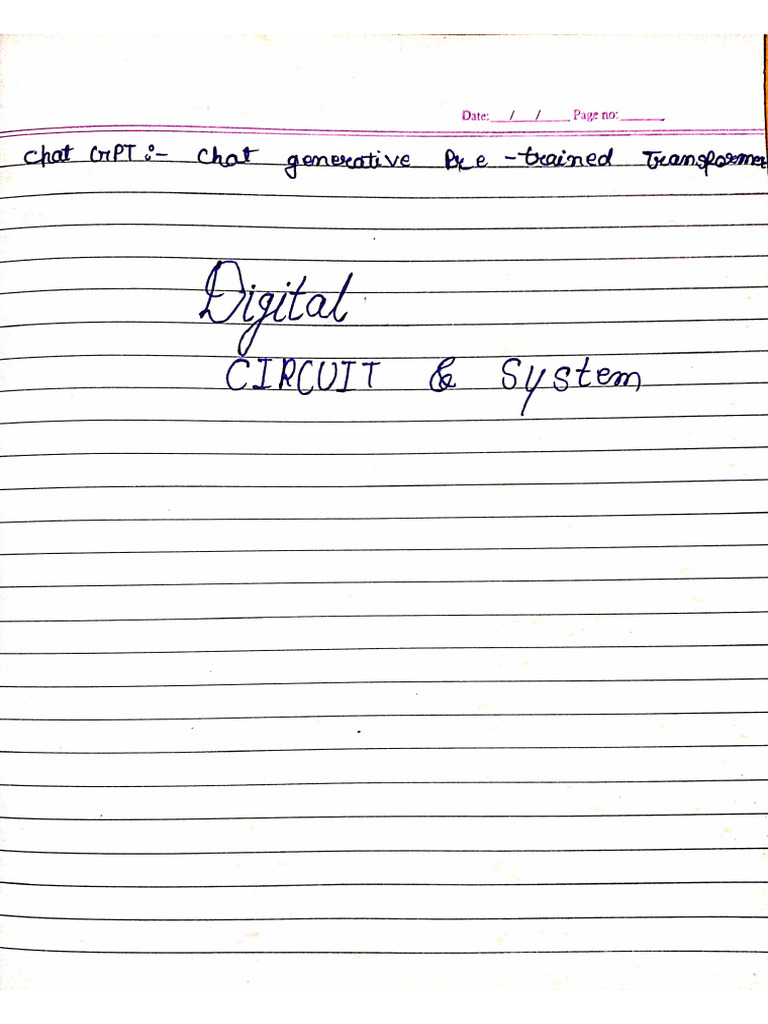 Date: / / Page no:
Chat GPT :- Chat generative Pre-trained Transformer
Digital
CIRCUIT & System